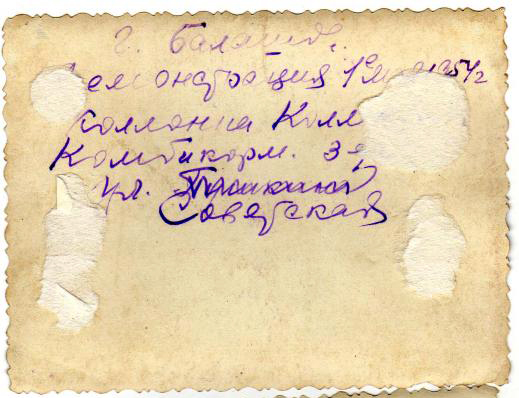 г. Балашов,
Демонстрация 1е мая 195 г.
колланна Колл
Комбикорм. з-д
ул. Пушкина
Советская